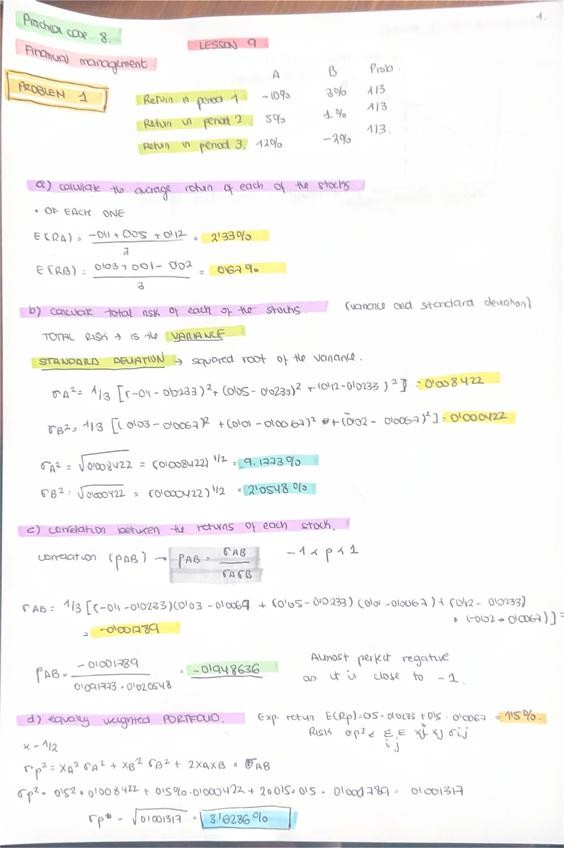 1.
Practical case 8.
LESSON 9
Financial management
PROBLEM 1
A B Prob.
Return in period 1 -10% 3% 1/3
Return in period 2 5% 1% 1/3
Return in period 3. 12% -2% 1/3.
a) calculate the average return of each of the stocks
• OF EACH ONE
E(RA) = -0'1 + 0'05 + 0'12 / 3 = 2'33%
E(RB) = 0'03 + 0'01 - 0'02 / 3 = 0'67%
b) calculate total risk of each of the stocks. (variance and standard deviation)
TOTAL RISK → is the VARIANCE
STANDARD DEVIATION → squared root of the variance.
σA² = 1/3 [(-0'1 - 0'0233)² + (0'05 - 0'0233)² + (0'12 - 0'0233)²] = 0'008422
σB² = 1/3 [(0'03 - 0'0067)² + (0'01 - 0'0067)² + (-0'02 - 0'0067)²] = 0'000422
σA² = √0'008422 = (0'008422)^1/2 = 9.1773%
σB² = √0'000422 = (0'000422)^1/2 = 2'0548%
c) correlation between the returns of each stock.
correlation (ρAB) → ρAB = σAB / σAσB -1 < ρ < 1
σAB = 1/3 [(-0'1 - 0'0233)(0'03 - 0'0067) + (0'05 - 0'0233)(0'01 - 0'0067) + (0'12 - 0'0233)
• (-0'02 - 0'0067)] =
= -0'001789
ρAB = -0'001789 / 0'091773 · 0'020548 = -0'948636
Almost perfect negative
as it is close to -1.
d) equally weighted PORTFOLIO. Exp. return E(Rp) = 0'5 · 0'0233 + 0'5 · 0'0067 = 1'15%.
x = 1/2 Risk σp² = Σ Σ xi xj σij
i j
σp² = XA² σA² + XB² σB² + 2XAXB · σAB
σp² = 0'5² · 0'008422 + 0'5² · 0'000422 + 2·0'5·0'5 · 0'001789 = 0'001317
σp = √0'001317 = 3'6286%